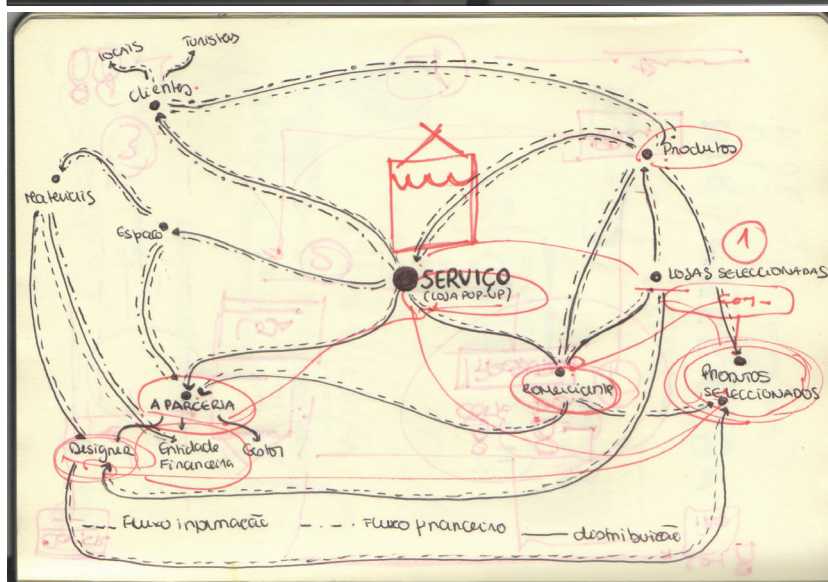 locais
Turistas
clientes
Produtos
Materiais
Espaço
1
SERVIÇO
(LOJA POP-UP)
LOJAS SELECCIONADAS
com-
PRODUTOS
SELECCIONADOS
Comerciante
A PARCERIA
Designer
Entidade
Financeira
Gestor
Fluxo informação
Fluxo financeiro
distribuição